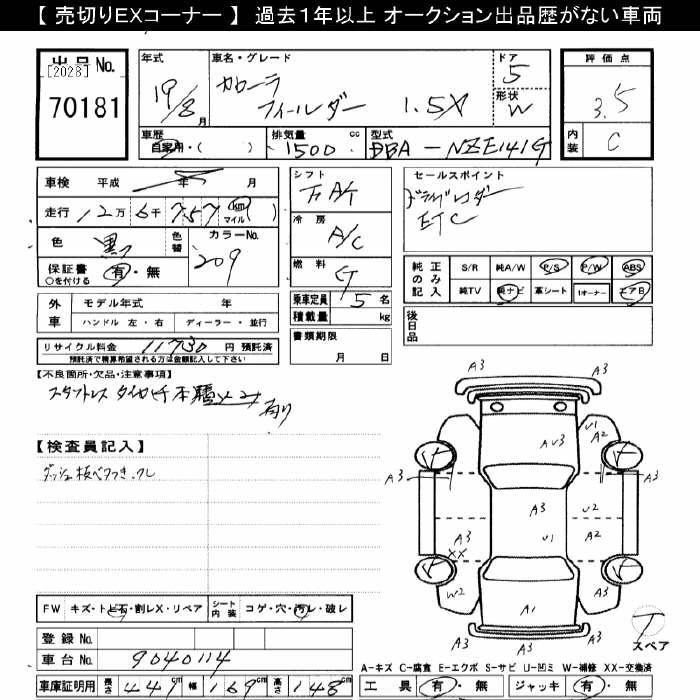 【 売切りEXコーナー 】 過去１年以上 オークション出品歴がない車両
出品 No.
[2028]
70181
年式
19/8月
車名・グレード
カローラ
フィールダー 1.5X
ドア
5
形状
W
評価点
3.5
内装
C
車歴
自家用・( )
排気量 cc
1500
型式
DBA-NZE141G
車検 平成 年 月
走行 12万6千757 km マイル ( )
色
黒
色替
カラーNo.
209
保証書
○を付ける
有・無
シフト
F AT
冷房
A/C
燃料
G
乗車定員 5 名
積載量 kg
セールスポイント
ETC
純正のみ記入
S/R 純A/W P/S P/W ABS
純TV 純ナビ 革シート 1オーナー エアB
外車
モデル年式 年
ハンドル 左・右 ディーラー・並行
リサイクル料金 11730 円 預託済
預託済で精算希望される方は金額記入して下さい
書類期限
月 日
後日品
【不良箇所・欠品・注意事項】
有り
【検査員記入】
FW キズ・トビ石・割レX・リペア
シート内装 コゲ・穴・汚レ・破レ
登録 No.
車台 No. 9040114
車庫証明用 長さ 441cm 幅 169cm 高さ 148cm
A3
A3
U1
A2
AU3
A3
A3
A3
U2
U1
A2
XX
W2
A1
A3
T
スペア
A-キズ C-腐食 E-エクボ S-サビ U-凹ミ W-補修 XX-交換済
工具 有・無 ジャッキ 有・無